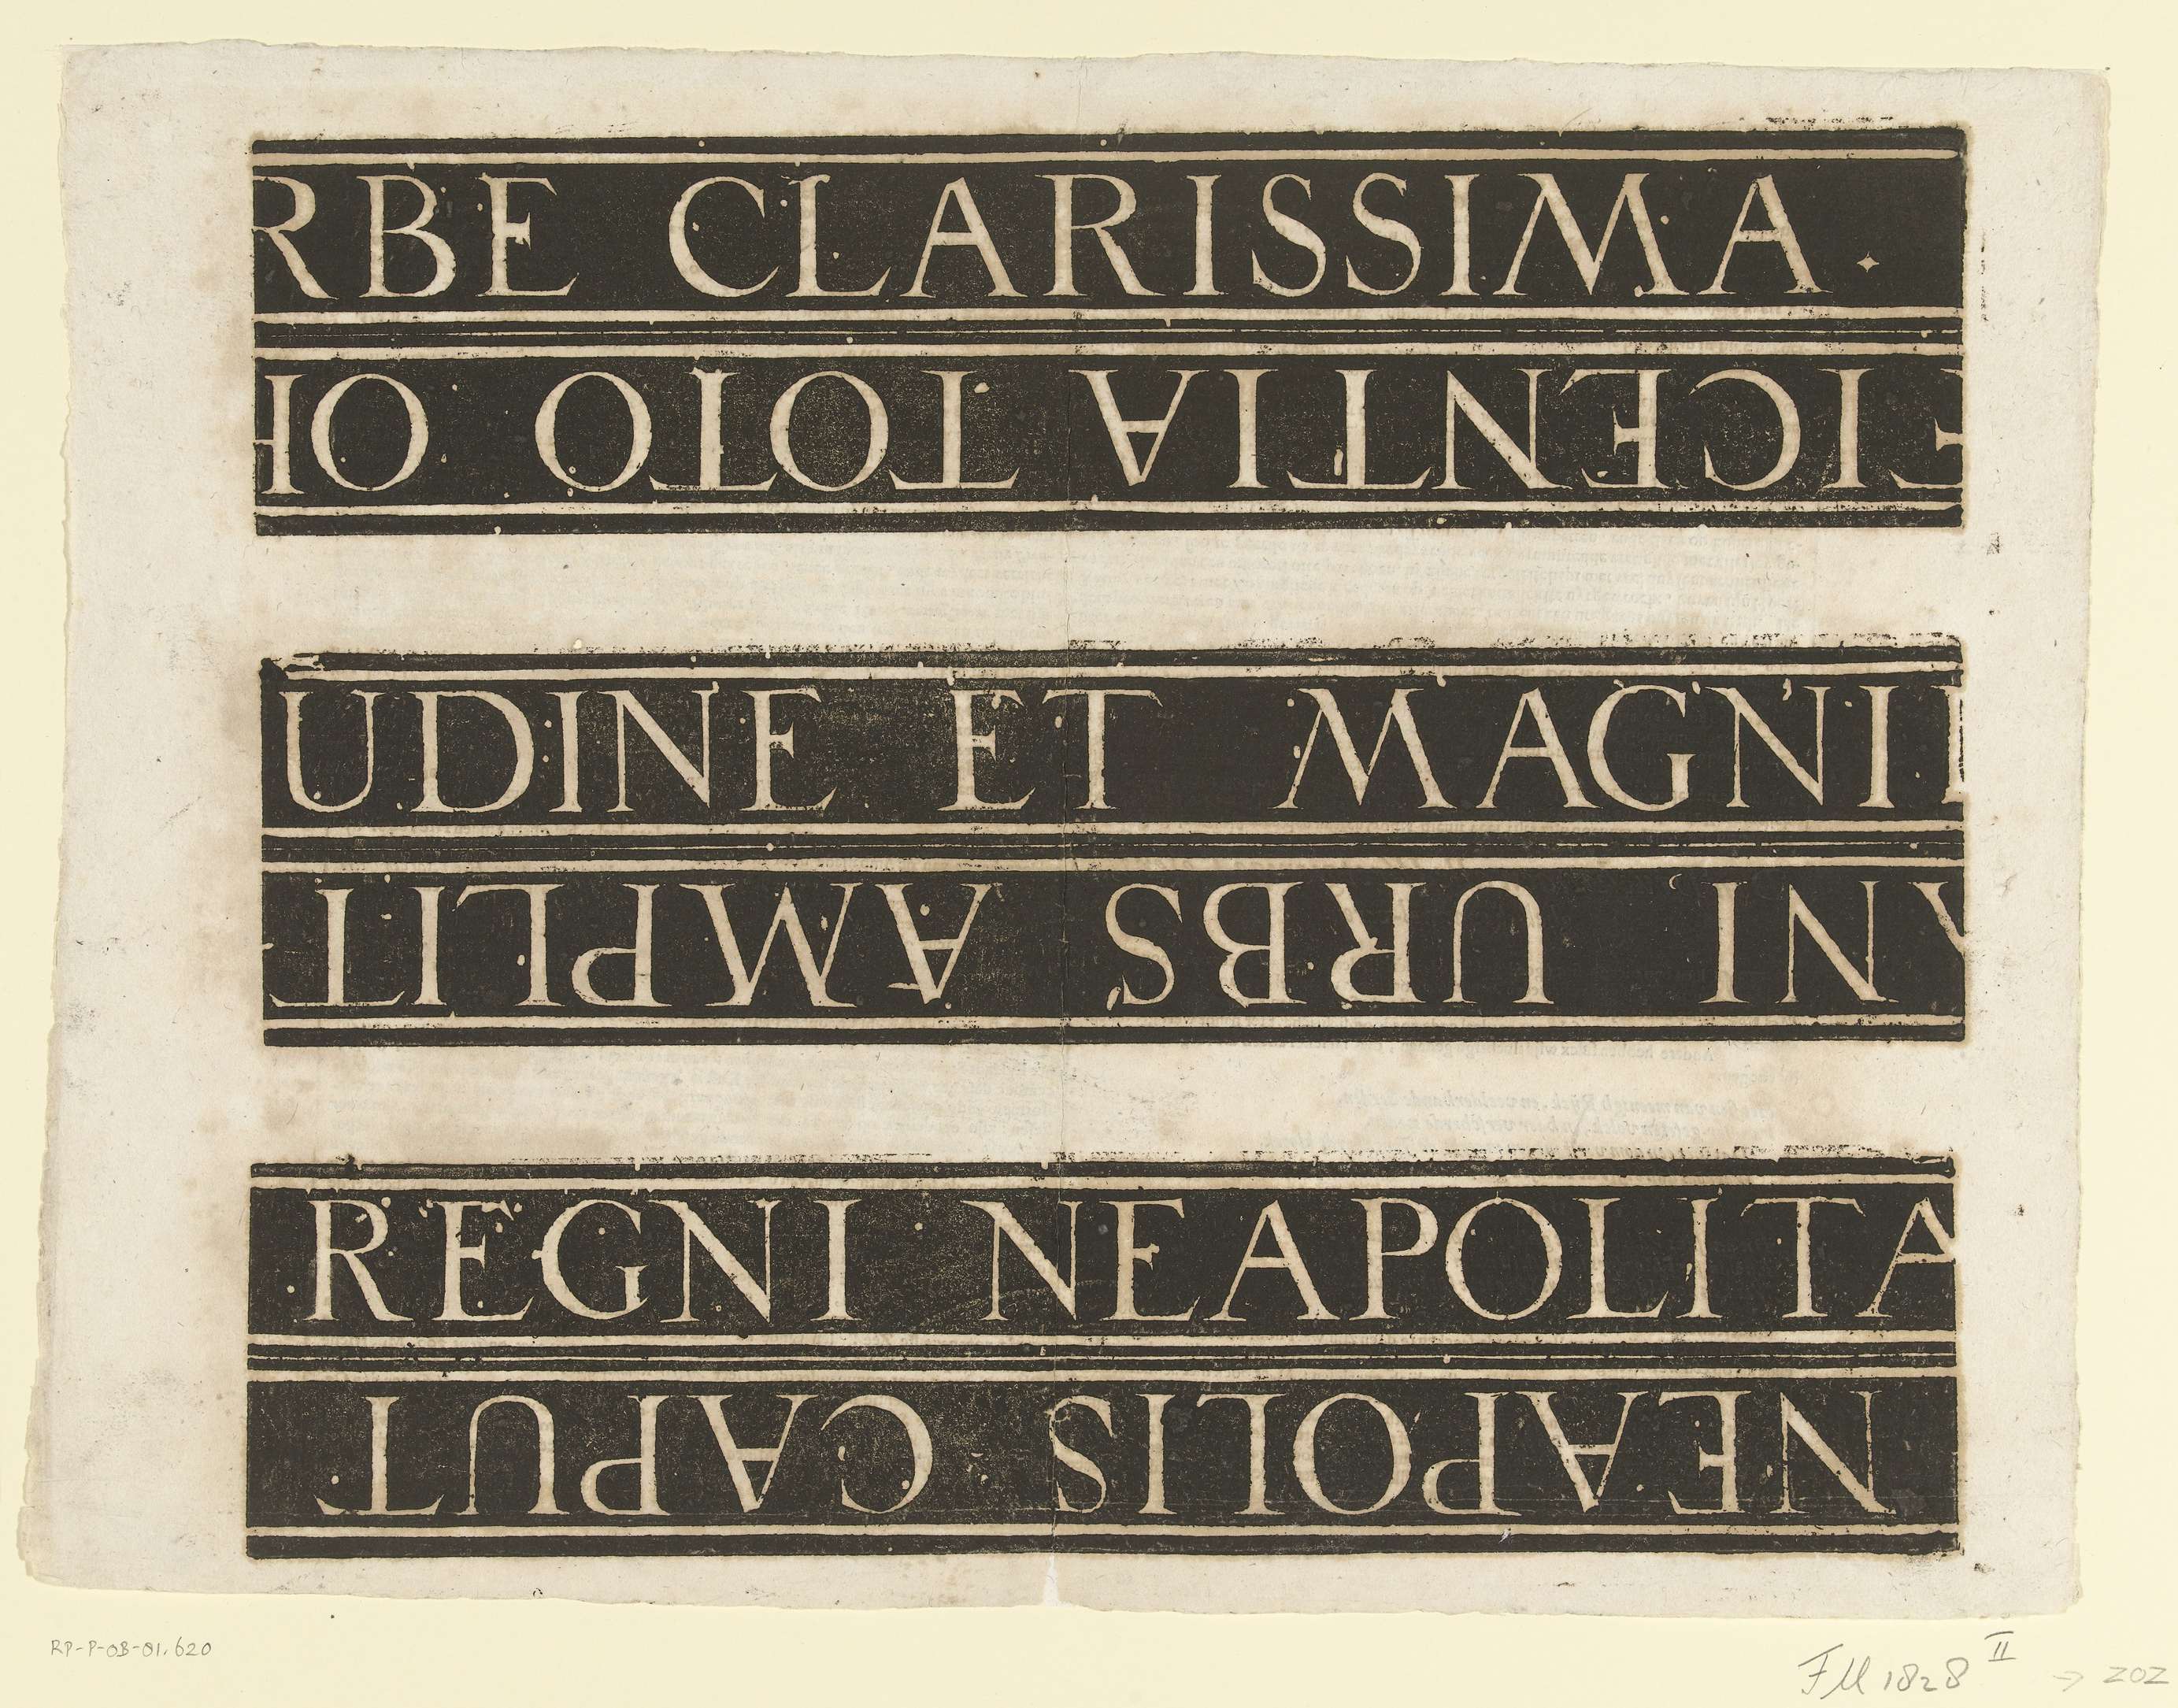 RBE CLARISSIMA.
ICENTIA TOTO O
UDINE ET MAGNI
NI URBS AMPLIT
REGNI NEAPOLITA
NEAPOLIS CAPUT
RP-P-OB-81.620
FM 1828 II → 202